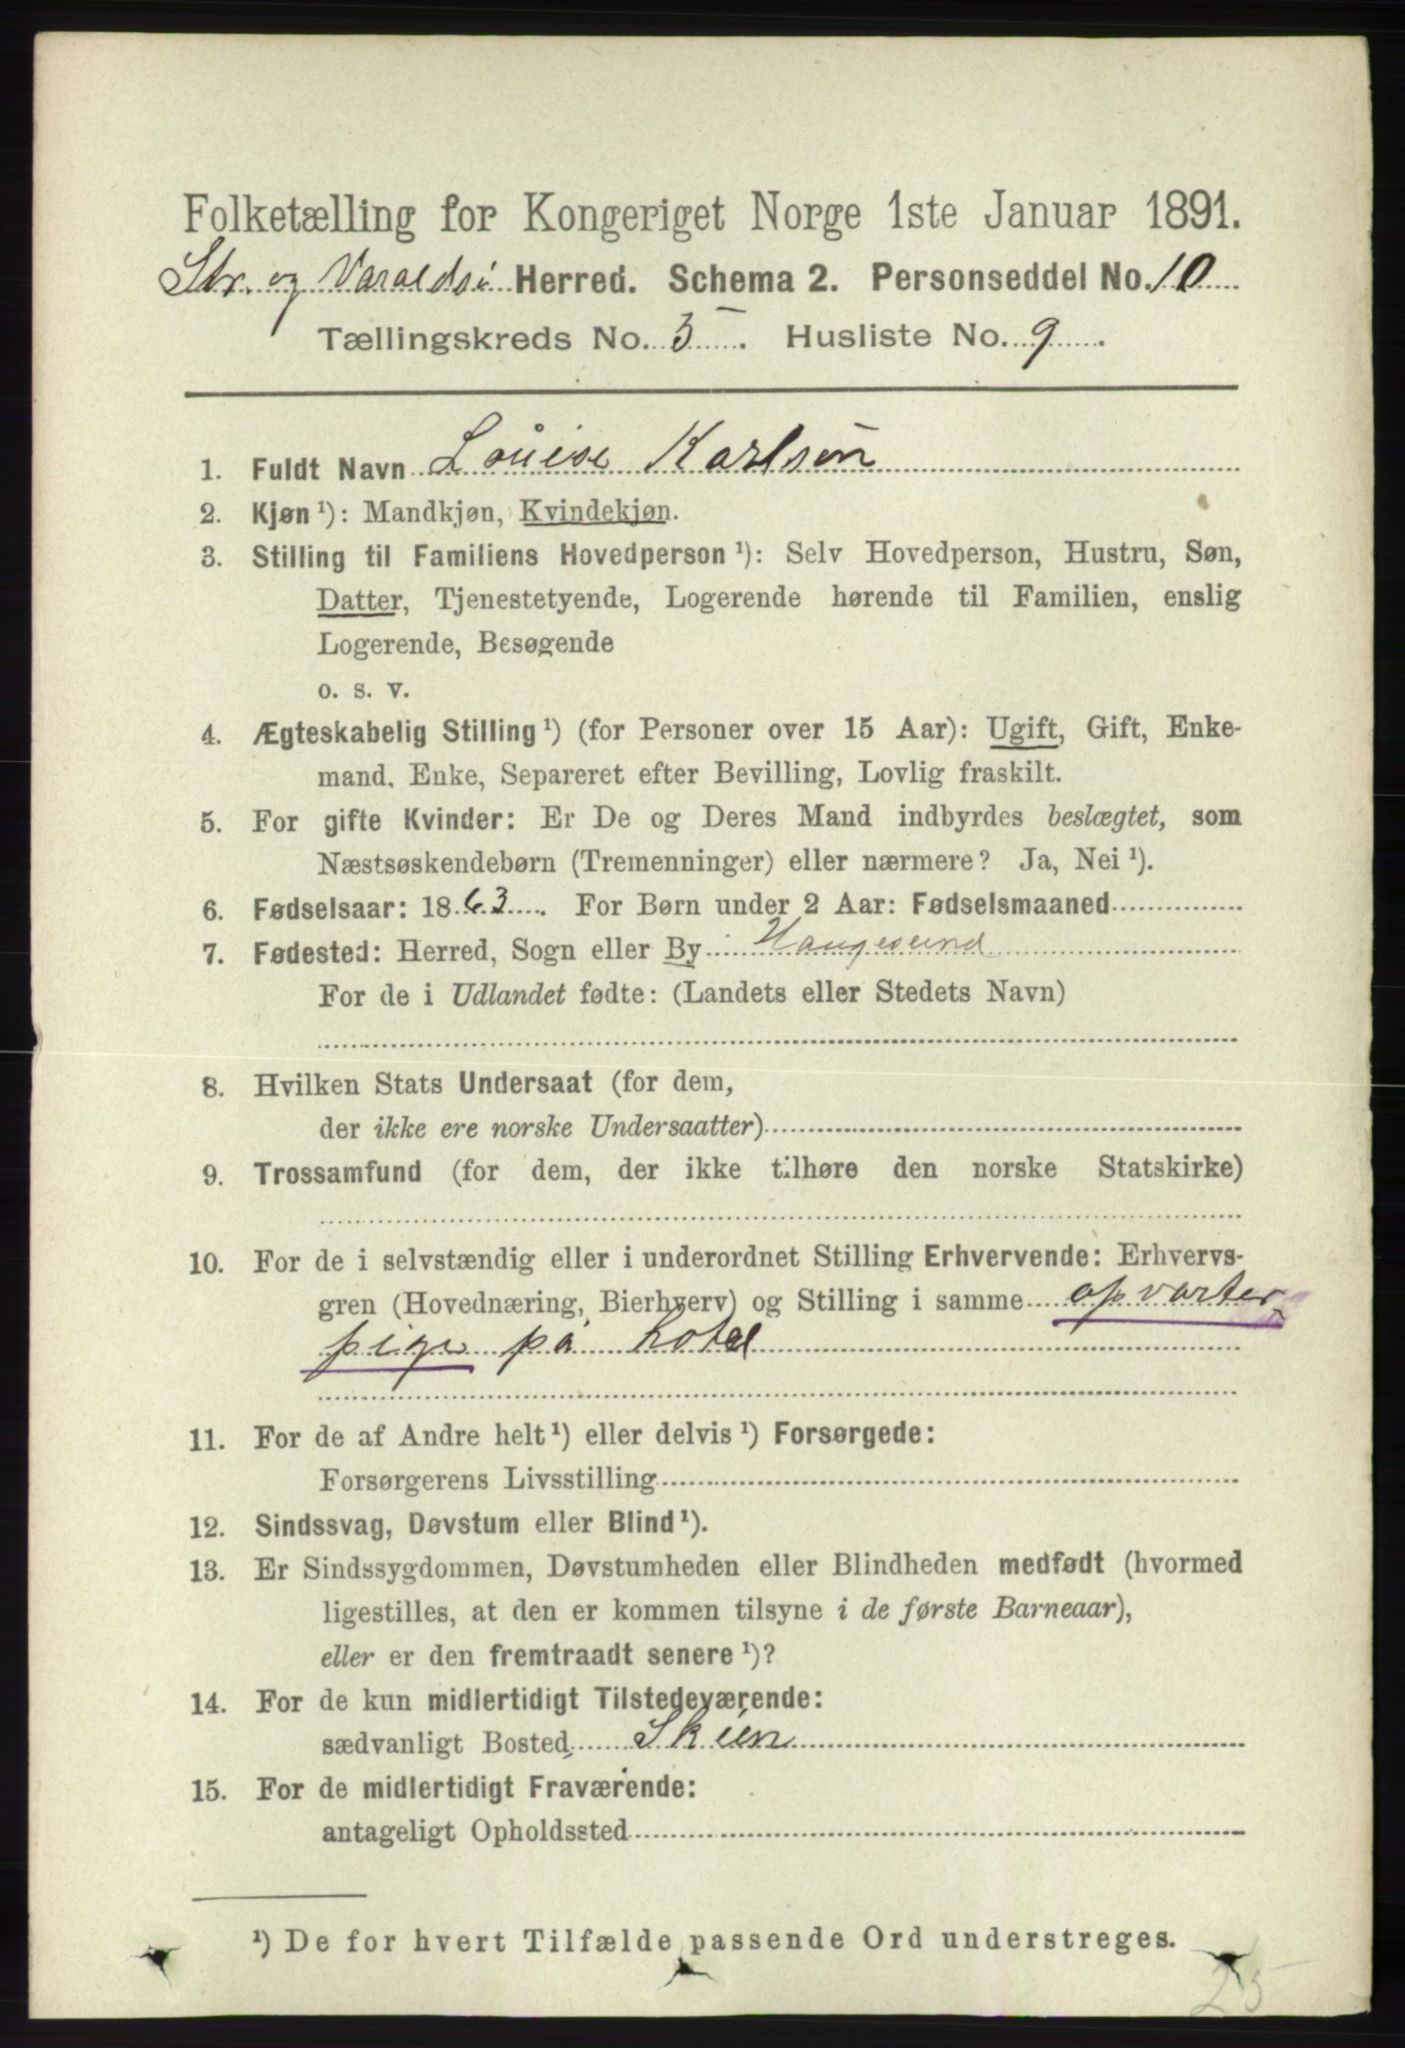 Folketælling for Kongeriget Norge 1ste Januar 1891.
Str. og Varaldsö Herred. Schema 2. Personseddel No. 10
Tællingskreds No. 5. Husliste No. 9.
1. Fuldt Navn Louise Karlsen
2. Kjøn ¹): Mandkjøn, Kvindekjøn.
3. Stilling til Familiens Hovedperson ¹): Selv Hovedperson, Hustru, Søn,
Datter, Tjenestetyende, Logerende hørende til Familien, enslig
Logerende, Besøgende
o. s. v.
4. Ægteskabelig Stilling ¹) (for Personer over 15 Aar): Ugift, Gift, Enke-
mand, Enke, Separeret efter Bevilling, Lovlig fraskilt.
5. For gifte Kvinder: Er De og Deres Mand indbyrdes beslægtet, som
Næstsøskendebørn (Tremenninger) eller nærmere? Ja, Nei ¹).
6. Fødselsaar: 1863. For Børn under 2 Aar: Fødselsmaaned
7. Fødested: Herred, Sogn eller By Haugesund
For de i Udlandet fødte: (Landets eller Stedets Navn)
8. Hvilken Stats Undersaat (for dem,
der ikke ere norske Undersaatter)
9. Trossamfund (for dem, der ikke tilhøre den norske Statskirke)
10. For de i selvstændig eller i underordnet Stilling Erhvervende: Erhvervs-
gren (Hovednæring, Bierhverv) og Stilling i samme opvarter
pige på hotel
11. For de af Andre helt ¹) eller delvis ¹) Forsørgede:
Forsørgerens Livsstilling
12. Sindssvag, Døvstum eller Blind ¹).
13. Er Sindssygdommen, Døvstumheden eller Blindheden medfødt (hvormed
ligestilles, at den er kommen tilsyne i de første Barneaar),
eller er den fremtraadt senere ¹)?
14. For de kun midlertidigt Tilstedeværende:
sædvanligt Bosted Skien
15. For de midlertidigt Fraværende:
antageligt Opholdssted
¹) De for hvert Tilfælde passende Ord understreges.
25